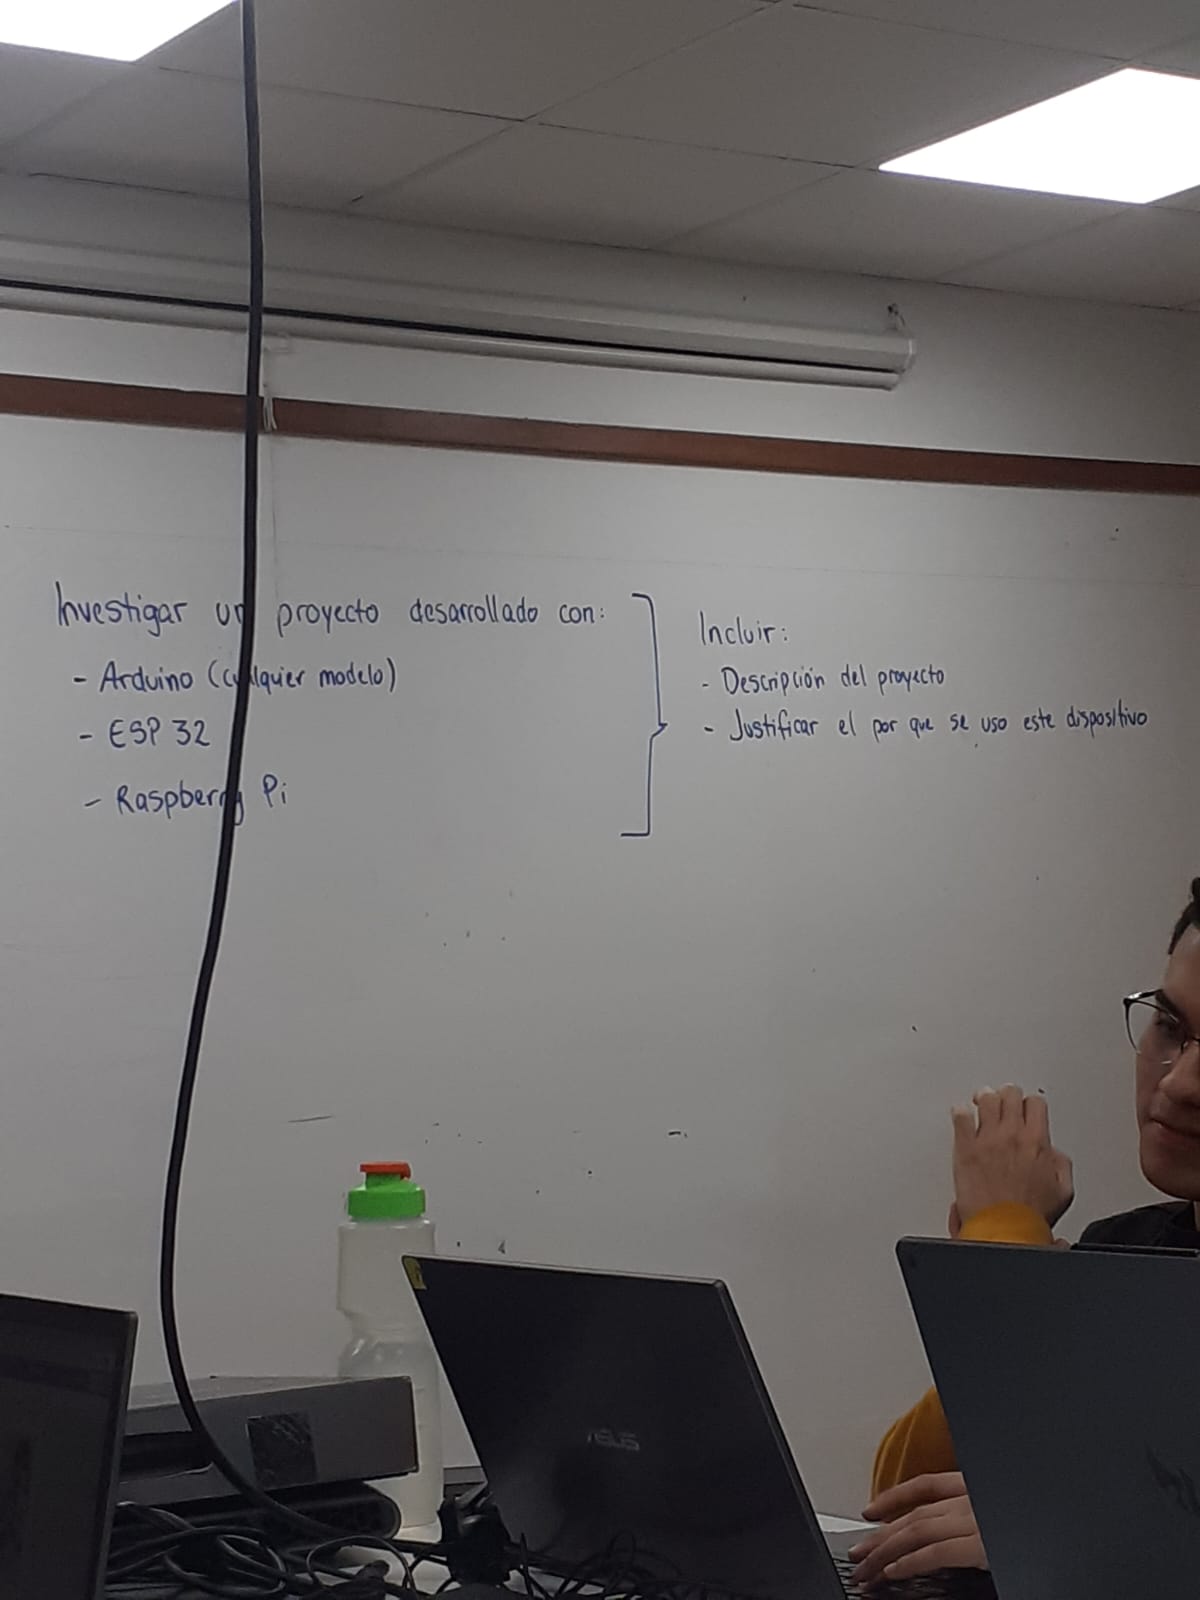 Investigar un proyecto desarrollado con:
- Arduino (cualquier modelo)
- ESP 32
- Raspberry Pi
Incluir:
- Descripción del proyecto
- Justificar el por que se uso este dispositivo
ASUS